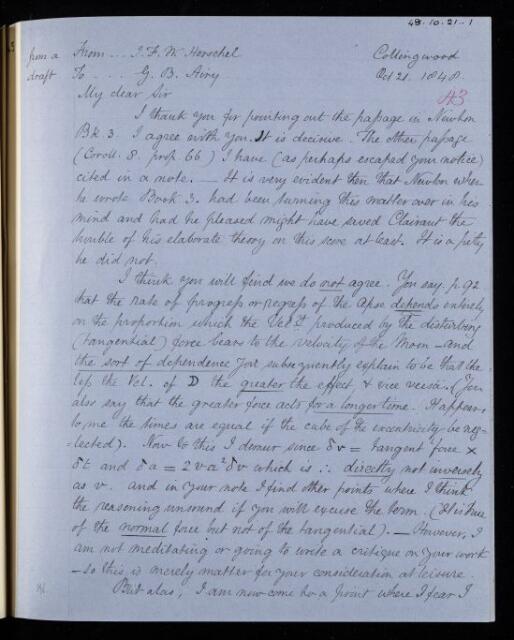 48.10.21.-1
from a draft
From ... J. F. W. Herschel
To .... G. B. Airy
Collingwood
Oct 21. 1848.
43
My dear Sir
I thank you for pointing out the passage in Newton
Bk 3. I agree with you. It is decisive. The other passage
(Coroll. 8. prop. 66) I have (as perhaps escaped your notice)
cited in a note. — It is very evident then that Newton when
he wrote Book 3. had been turning this matter over in his
mind and had he pleased might have saved Clairaut the
trouble of his elaborate theory on this score at least. It is a pity
he did not.
I think you will find we do not agree. You say p. 92
that the rate of progress or regress of the Apse depends entirely
on the proportion which the Vel.y produced by the disturbing
(tangential) force bears to the velocity of the Moon — and
the sort of dependence you subsequently explain to be that the
less the Vel. of D the greater the effect & vice versa. (You
also say that the greater force acts for a longer time. It appears
to me the times are equal if the cube of the excentricity be neg-
lected). Now to this I demur since δv = tangent force ×
δt and δa = 2va²δv which is ∴ directly not inversely
as v. and in your note I find other points where I think
the reasoning unsound if you will excuse the term. (It is true
of the normal force but not of the tangential). — However, I
am not meditating or going to write a critique on your work
— so this is merely matter for your consideration at leisure.
But alas, I am now come to a point where I fear I